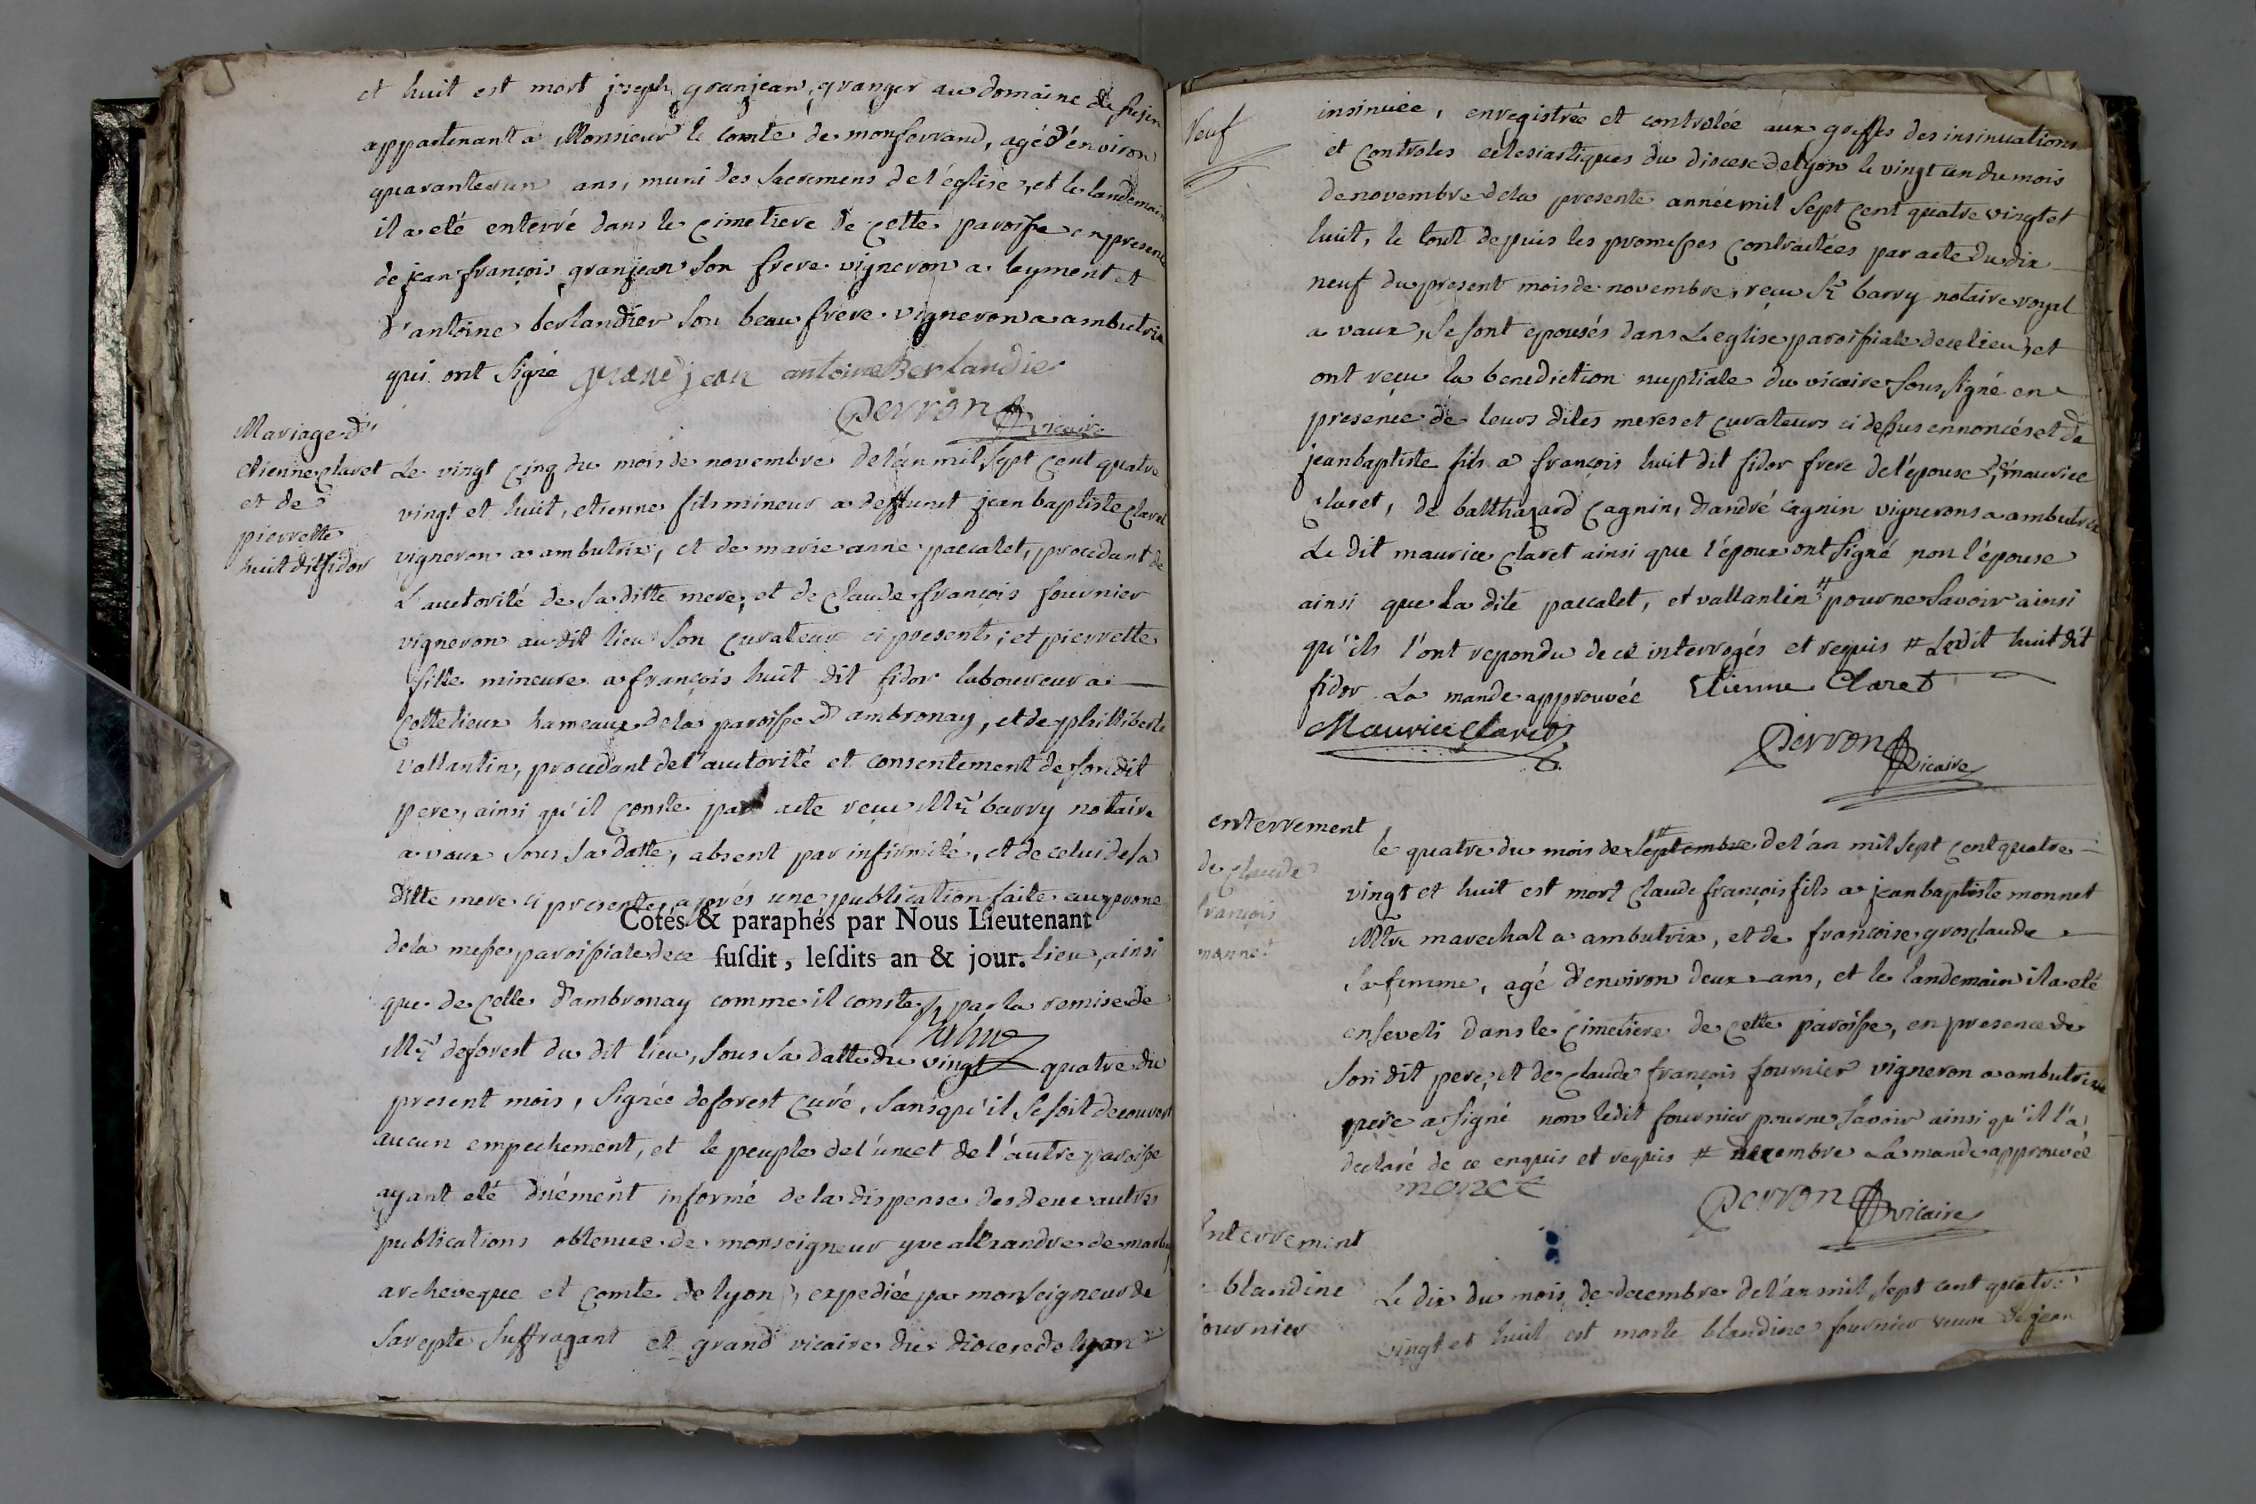 et huit est mort joseph granjean, granger au domaine de
appartenant a Monsieur le comte de monferrand, agé d'environ
quarante un ans, muni des sacremens de l'église, et le landemain
il a eté enterré dans le cimetiere de cette paroisse en presence
de jean françois granjean son frere vigneron a leyment et
d'antoine berlandier son beau frere vigneron a ambutrix
qui ont signé grand jean antoine Berlandier
Perron vicaire
Mariage d'
etienne claret
et de
pierrette
huit dit fidor
Le vingt cinq du mois de novembre de l'an mil sept cent quatre
vingt et huit, etienne fils mineur a deffunt jean baptiste claret
vigneron a ambutrix, et de marie anne pascalet, procedant de
l'autorité de sa ditte mere, et de claude françois fournier
vigneron au dit lieu son curateur ci present; et pierrette
fille mineure a françois huit dit fidor laboureur a
cottelieux hameaux de la paroisse d'ambronay, et de philliberte
vallantin, procedant de l'autorité et consentement de son dit
pere, ainsi qu'il conste par acte recu Mre barry notaire
a vaux sous sa datte, absent par infirmité, et de celui de sa
ditte mere ci presente, aprés une publication faite au prone
Cotés & paraphés par Nous Lieutenant
de la messe paroissiale de ce lieu, ainsi
susdit, lesdits an & jour.
que de celle d'ambronay comme il conste par la remise de
Mre deforest du dit lieu, sous sa datte du vingt quatre du
present mois, signée deforest curé, sans qu'il se soit decouvert
aucun empechement, et le peuple de l'une et de l'autre paroisse
ayant eté duément informé de la dispense des deux autres
publications obtenue de monseigneur yve allexandre de marbeuf
archeveque et comte de lyon, expediée par monseigneur de
sarepte suffragant et grand vicaire du diocese de lyon
Neuf
insinuée, enregistrée et controlée aux greffes des insinuations
et controles eclesiastiques du diocese de lyon le vingt un du mois
de novembre de la presente année mil sept cent quatre vingt et
huit, le tout depuis les promesses contractées par acte du dix
neuf du present mois de novembre, reçu Sr barry notaire royal
a vaux, se sont epousés dans l'eglise paroissiale de ce lieu, et
ont reçu la benediction nuptiale du vicaire soussigné en
presence de leurs dites meres et curateurs ci dessus ennoncés et de
jean baptiste fils a françois huit dit fidor frere de l'épouse, de maurice
claret, de balthazard cagnin, d'andré cagnin vignerons a ambutrix
Le dit maurice claret ainsi que l'époux ont signé non l'épouse
ainsi que la dite pascalet, et vallantin # pour ne savoir ainsi
qu'ils l'ont repondu de ce interrogés et requis # Ledit huit dit
fidor La mande approuvée Etienne Claret
Maurice Claret
Perron vicaire
enterrement
de claude
françois
monnet
le quatre du mois de septembre # de l'an mil sept cent quatre
vingt et huit est mort claude françois fils a jean baptiste monnet
Mtre marechal a ambutrix, et de françoise grosclaude
sa femme, agé d'environ deux ans, et le landemain il a eté
enseveli dans le cimetiere de cette paroisse, en presence de
son dit pere, et de claude françois fournier vigneron a ambutrix
pere a signé non ledit fournier pour ne savoir ainsi qu'il l'a
declaré de ce enquis et requis # decembre La mande approuvée
monet
Perron vicaire
Enterrement
blandine
fournier
Le dix du mois de decembre de l'an mil sept cent quatre
vingt et huit est morte blandine fournier veuve de jean